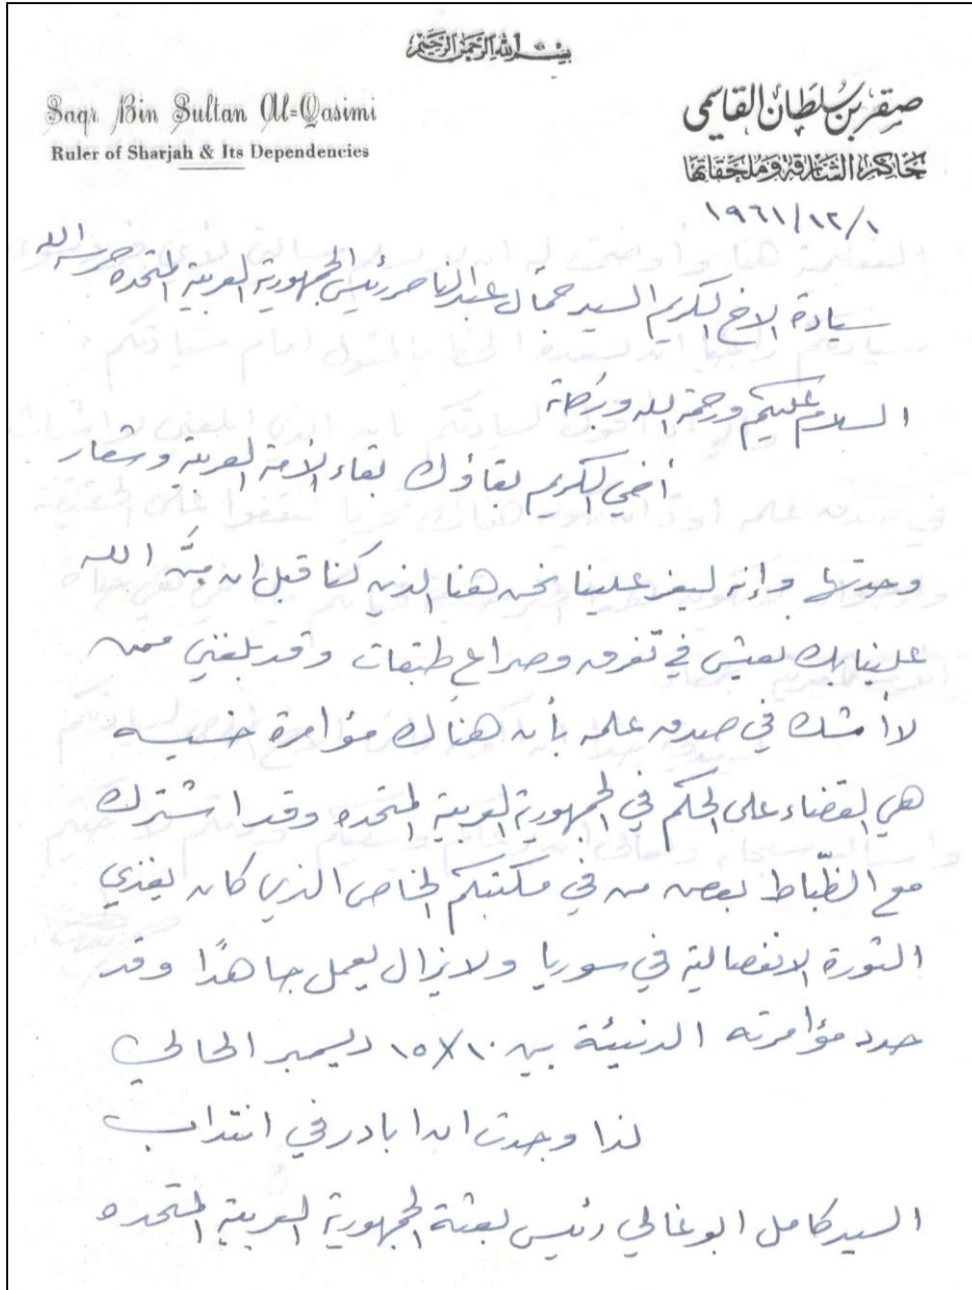 بسم الله الرحمن الرحيم
صقر بن سلطان القاسمي
حاكم الشارقة وملحقاتها
Saqr Bin Sultan Al=Qasimi
Ruler of Sharjah & Its Dependencies
١٩٦١/١٢/١
سيادة الاخ الكريم السيد جمال عبد الناصر رئيس الجمهورية العربية المتحده حرسه الله
السلام عليكم ورحمة الله وبركاته
أخي الكريم بقاؤك بقاء الأمة العربية وشعار
وحدتها وإنه ليعز علينا نحن هنا الذين كنا قبل ان منّ الله
علينا بك نعيش في تفرق وصراع طبقات وقد بلغني ممن
لا أشك في صدق علمه بأن هناك مؤامرة خسيسه
هي القضاء على الحكم في الجمهورية العربية المتحده وقد اشترك
مع الظّباط بعض من في مكتبكم الخاص الذي كان يغذي
الثورة الانفصالية في سوريا ولا يزال يعمل جاهدًا وقد
حدد مؤامرته الدنيئة بين ١٠/١٥ ديسمبر الحالي
لذا وجدت ان ابادر في انتداب
السيد كامل ابو غالي رئيس بعثة الجمهورية العربية المتحده